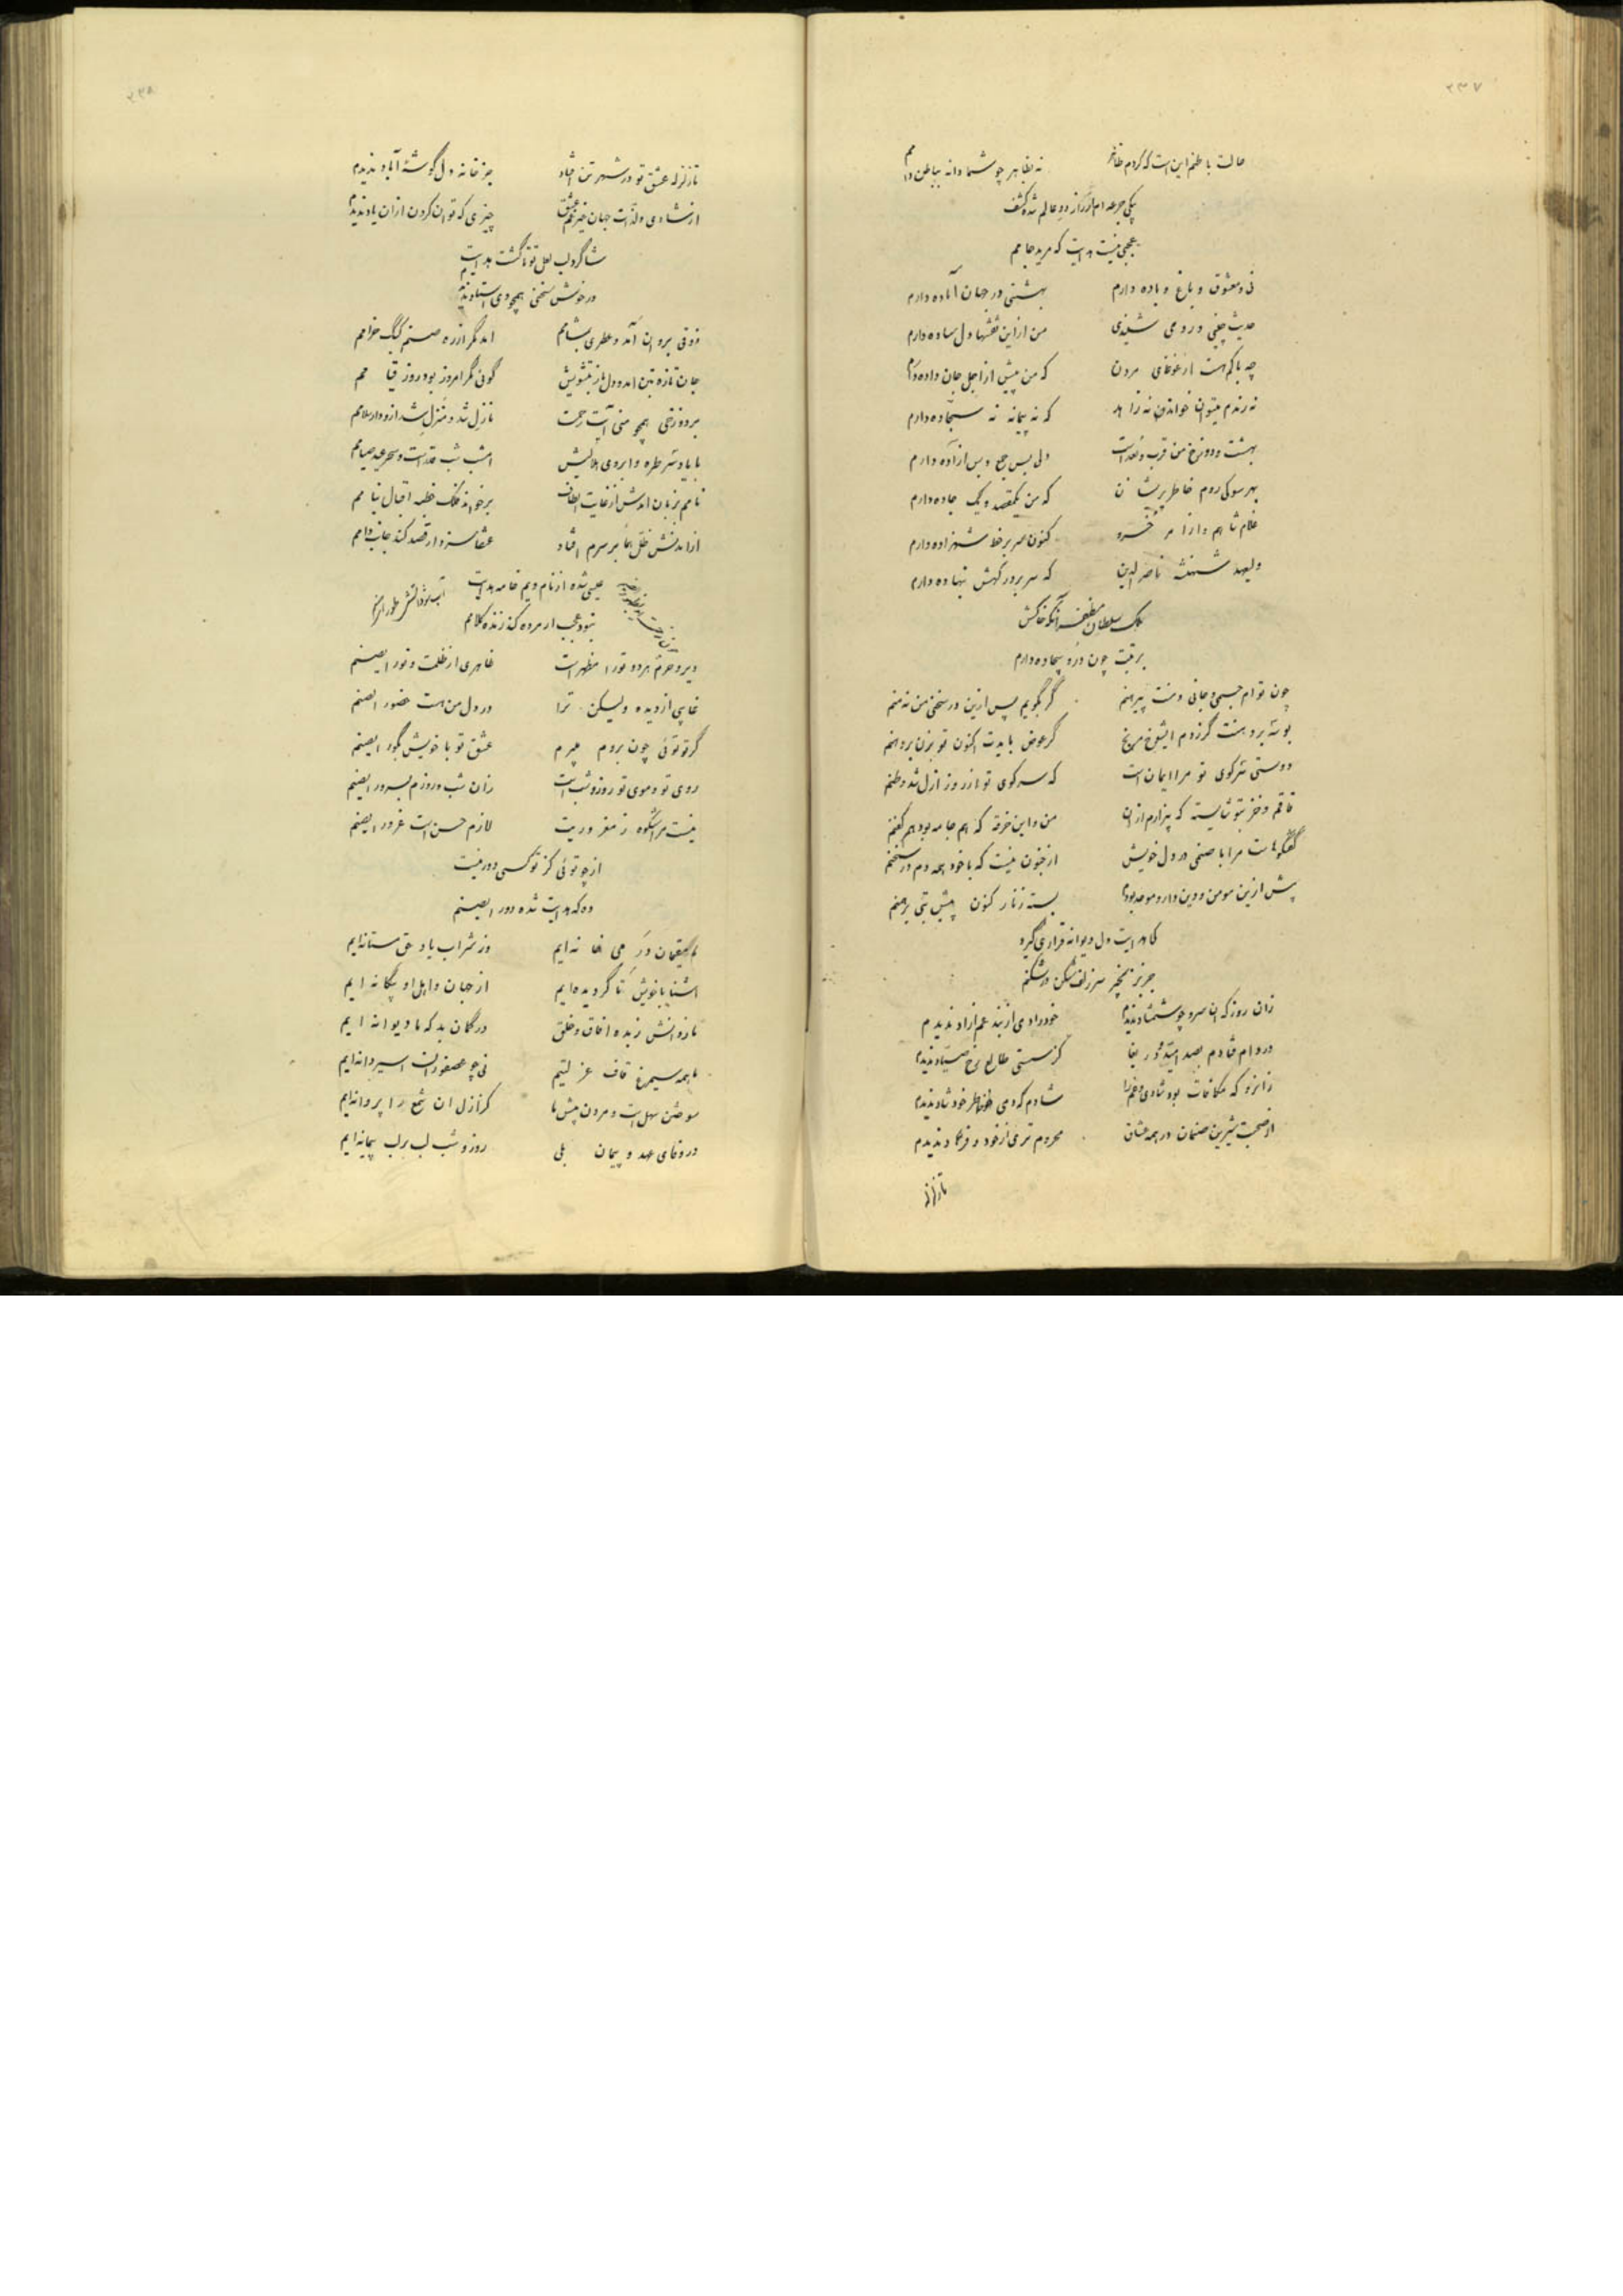 ۲۳۷
حالت باطنم این است که کردم ظاهر نه بظاهر چو شما دانه بباطن دامم
یکی جرعه ام از راز دو عالم شده کشف
عجبی نیست هدایت که مرید جامم
نی و معشوق و باغ و باده دارم بهشتی در جهان آماده دارم
حدیث چینی و رومی شنیدی من از این نقشها دل ساده دارم
چه باکم هست از غوغای مردن که من پیش از اجل جان داده دارم
نه رندم میتوان خواندن نه زاهد که نه پیمانه نه سجاده دارم
بهشت و دوزخ من قرب و بعد است دلی بس جمع و بس آزاده دارم
بهر سو کی روم خاطر پریشان که من یکمقصد و یک جاده دارم
غلام شاهم و از امر خسرو کنون سر بر خط شهزاده دارم
ولیعهد شهنشه ناصرالدین که سر بر درگهش نهاده دارم
ملک سلطان مظفر آنکه خاکش
برتبت چون در و بیجاده دارم
چون توام جسمی و جانی و منت پیرهنم گر بگویم پس ازین در سخن من نه منم
بوسه بر دهنت گر زدم ایشوخ مرنج گر عوض بایدت اکنون تو بزن بر دهنم
دوستی سر کوی تو مرا ایمان است که سر کوی تو از روز ازل شد وطنم
قاقم و خز بتو شایسته که بیزارم از آن من و این خرقه که هم جامه بود هم کفنم
گفتگوهاست مرا با صنمی در دل خویش از جنون نیست که با خود همه دم در سخنم
پیش ازین مومن و دین دار و موحد بودم بسته زنار کنون پیش بتی برهمنم
کی هدایت دل دیوانه قراری گیرد
جز بزنجیر سر زلف شکن در شکنم
زان روز که آن سرو چو شمشاد ندیدم خود را دمی از بند غم آزاد ندیدم
در دام فتادم بصد امید و دریغا کز سستی طالع رخ صیاد ندیدم
زانرو که مکافات بود شادی و غم را شادم که دمی خاطر خود شاد ندیدم
از صحبت شیرین صنمان در همه عشاق محروم تری از خود و فرهاد ندیدم
تا زلزله
۲۳۸
تا زلزله عشق تو در شهر تن افتاد جز خانه دل گوشه آباد ندیدم
از شادی و لذات جهان جز غم عشق چیزی که توان کردن از آن یاد ندیدم
شاگرد لب لعل تو تا گشت هدایت
در خوش سخنی همچو وی استاد ندیدم
ذوقی بروان آمد و عطری بمشامم آمد مگر از ره صنم کبک خرامم
جان تازه بتن آمد و دل باز بتشویش گوئی مگر امروز بود روز قیامم
بر دوزخی همچو منی آیت رحمت نازل شد و منزل شد ازو دارسلامم
با یاد سر طره و ابروی هلالیش امشب شب قدر است و سحر عید صیامم
نامم بزبان آمدش از غایت الطاف برخواند فلک خطبه اقبال بنامم
از آمدنش ظل هما بر سرم افتاد عنقا سزد ار قصد کند جانب دامم
عیسی شده از نام ویم خامه هدایت
نبود عجب ار مرده کند زنده کلامم
دیر و حرم هر دو تو را مظهر است ظاهری از ظلمت و نور ایصنم
غایبی از دیده ولیکن ترا در دل من هست حضور ایصنم
گر تو توئی چون بروم میرم عشق تو با خویش بگور ایصنم
روی تو و موی تو روز و شب است زان شب و روزم بسرور ایصنم
نیست مرا شکوه ز مغروریت لازم حسن است غرور ایصنم
از چو توئی کز تو کسی دور نیست
وه که هدایت شده دور ایصنم
ما مقیمان در می خانه ایم وز شراب یاد حق مستانه ایم
آشنا با خویش تا گردیده ایم از جهان و اهل او بیگانه ایم
ما ز دانش زبده آفاق و خلق در گمان بد که ما دیوانه ایم
ما همه سیمرغ قاف عزلتیم نی چو عصفوران اسیر دانه ایم
سوختن سهل است و مردن پیش ما کز ازل آن شمع را پروانه ایم
در وفای عهد و پیمان بلی روز و شب لب بر لب پیمانه ایم